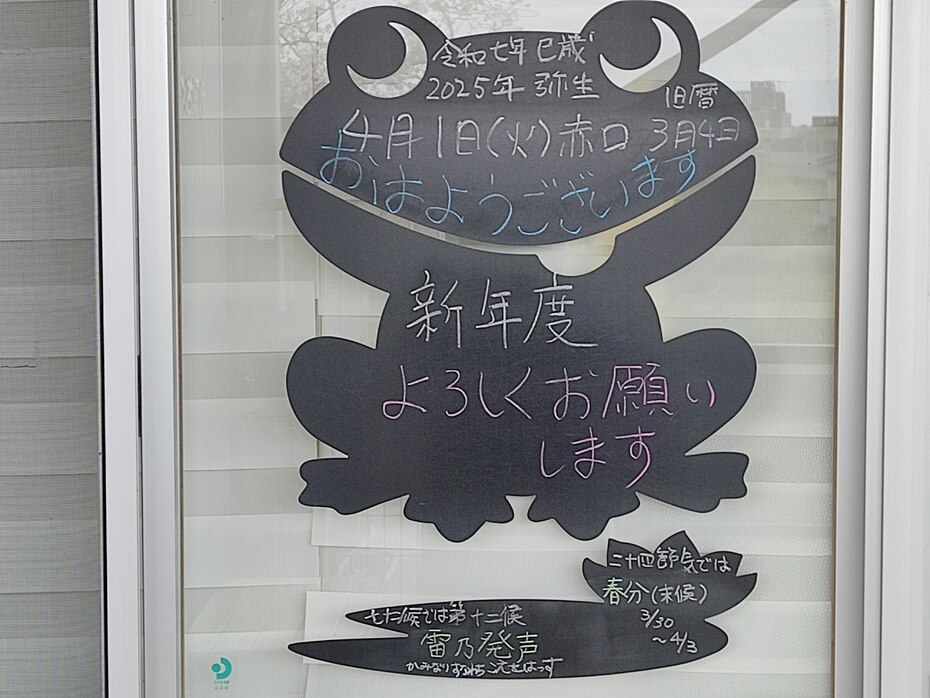 令和七年 巳歳
2025年 弥生
旧暦
4月1日(火)赤口 3月4日
おはようございます
新年度
よろしくお願い
します
二十四節気では
春分(末候)
3/30
～4/3
七十二候では第十二候
雷乃発声
かみなりすなわちこえをはっす